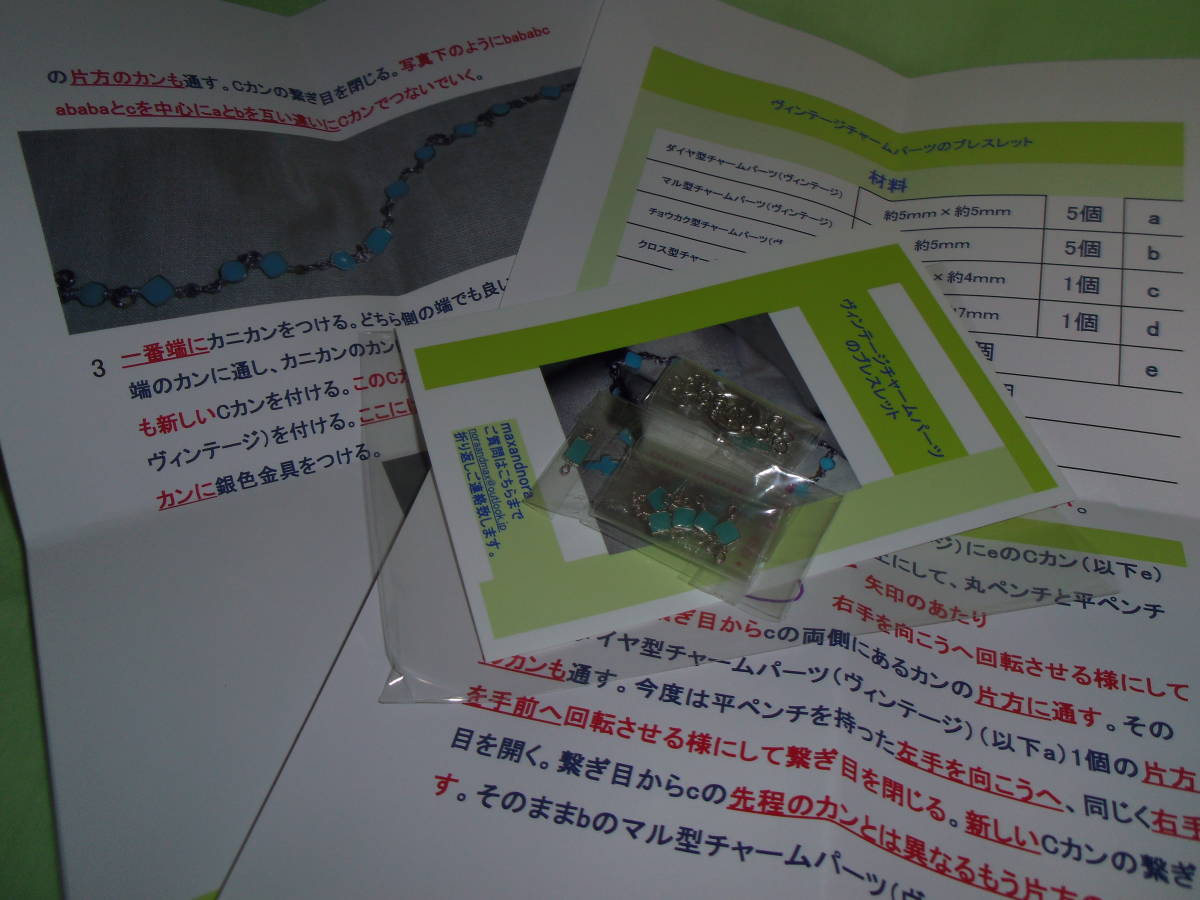 の片方のカンも通す。Cカンの繋ぎ目を閉じる。写真下のようにbababc
ababaとcを中心にaとbを互い違いにCカンでつないでいく。
3 一番端にカニカンをつける。どちら側の端でも良い
端のカンに通し、カニカンのカン
も新しいCカンを付ける。このCカ
ヴィンテージ)を付ける。ここに
カンに銀色金具をつける。
ヴィンテージチャームパーツのブレスレット
材料
ダイヤ型チャームパーツ(ヴィンテージ) 約5mm×約5mm 5個 a
マル型チャームパーツ(ヴィンテージ) 約5mm 5個 b
チョウカク型チャームパーツ(ヴ ×約4mm 1個 c
クロス型チャー 7mm 1個 d
個 e
ヴィンテージチャームパーツ
のブレスレット
maxandnora
ご質問はこちらまで
noraandmax@outlook.jp
折り返しご連絡致します。
ージ)にeのCカン(以下e)
上にして、丸ペンチと平ペンチ
矢印のあたり
右手を向こうへ回転させる様にして
ぎ目からcの両側にあるカンの片方に通す。その
イヤ型チャームパーツ(ヴィンテージ)(以下a)1個の片方
のカンも通す。今度は平ペンチを持った左手を向こうへ、同じく右手
を手前へ回転させる様にして繋ぎ目を閉じる。新しいCカンの繋ぎ
目を開く。繋ぎ目からcの先程のカンとは異なるもう片方の
す。そのままbのマル型チャームパーツ(ヴ